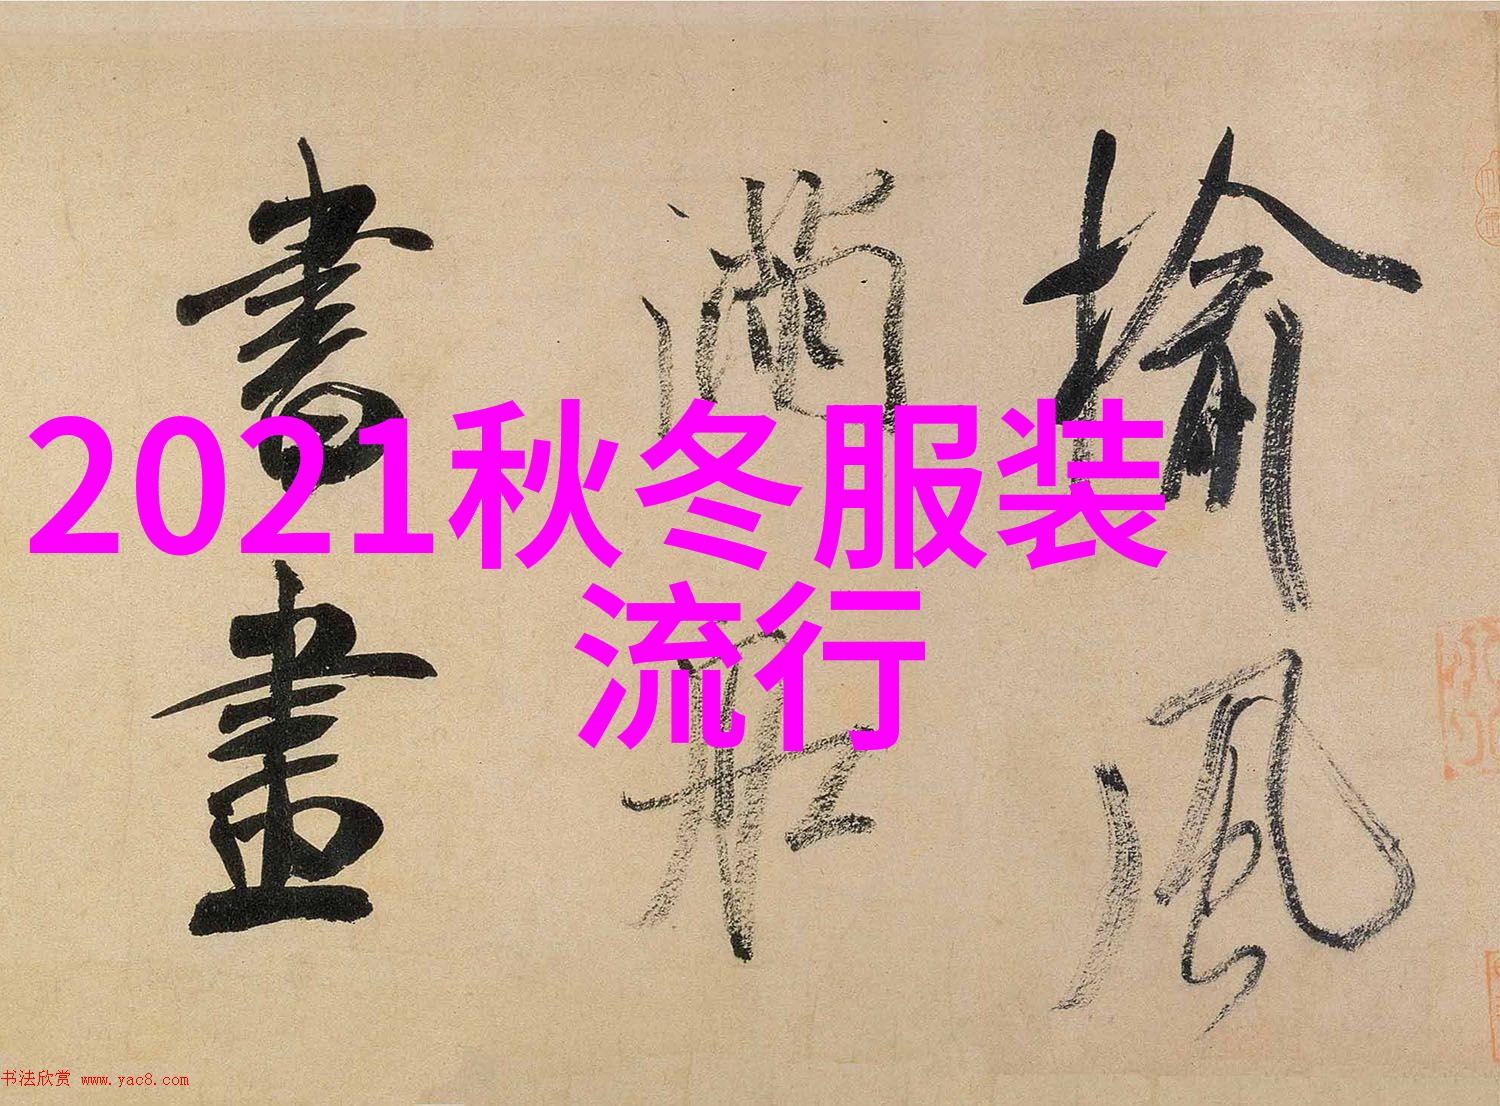 榆風
滿船
書畫
2021秋冬服装
流行
书法欣赏 www.yac8.com